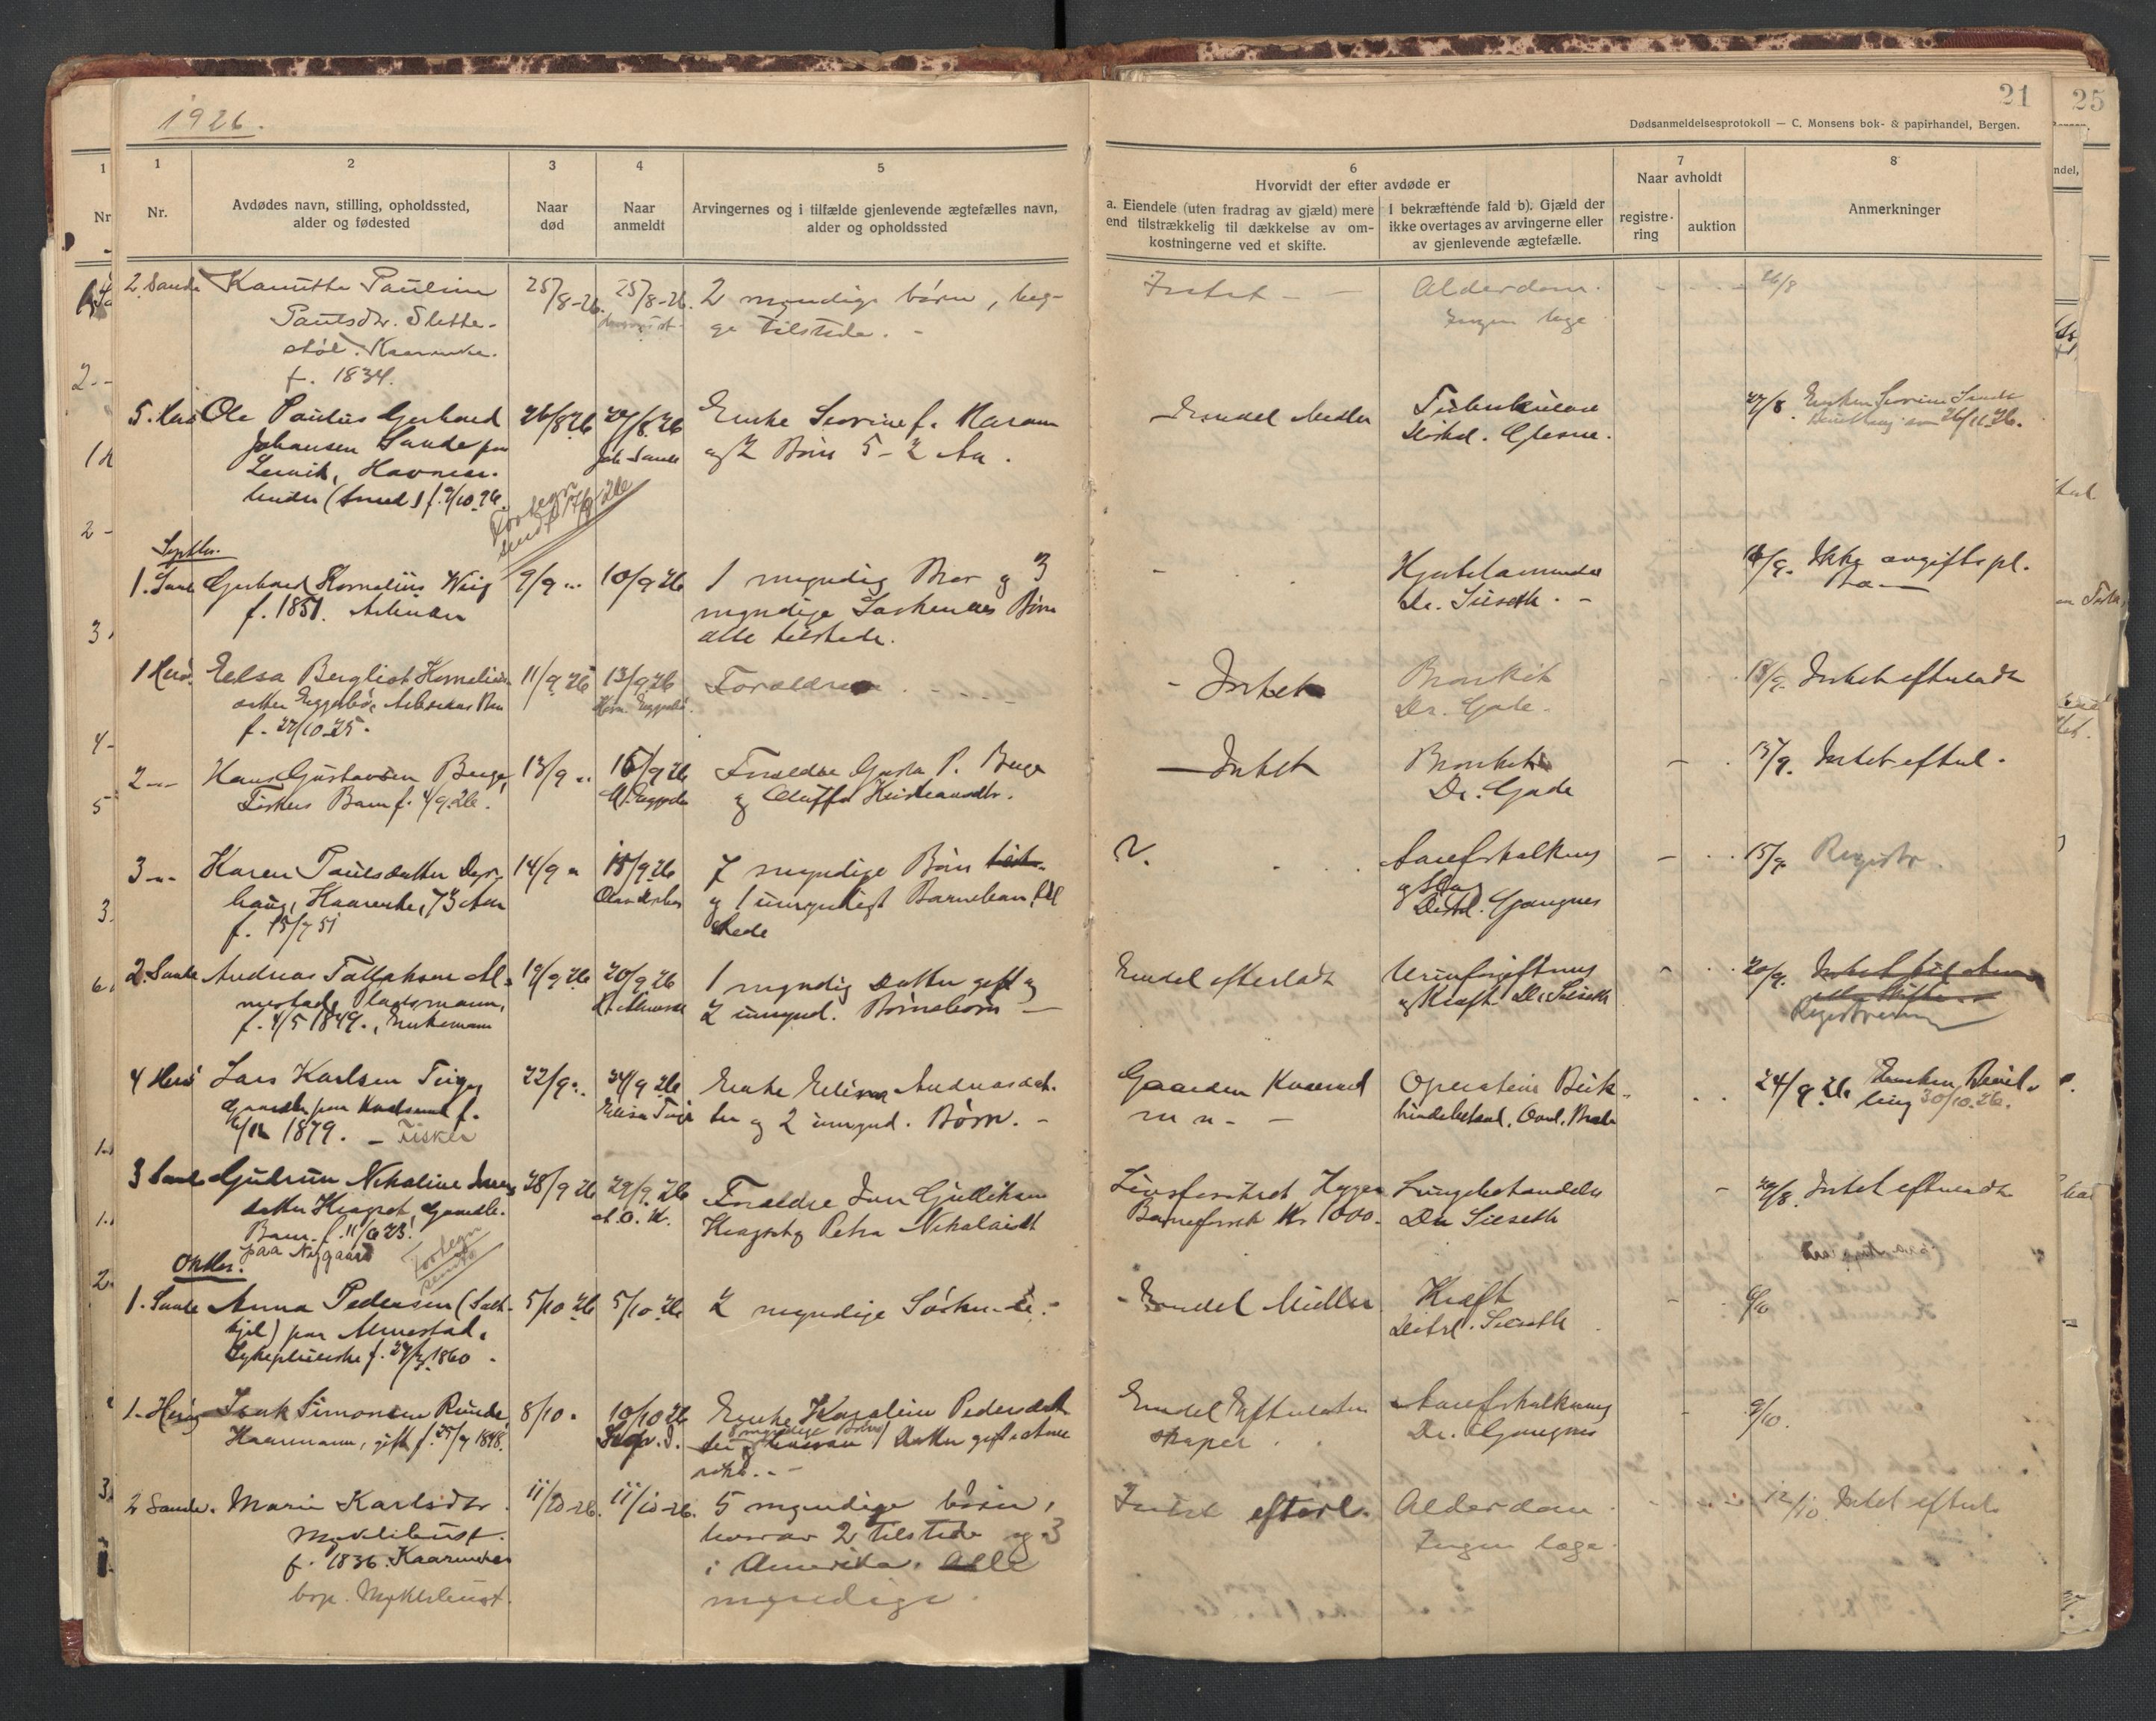 1926.
21
25
Dødsanmeldelsesprotokoll — C. Monsens bok- & papirhandel, Bergen.
1
2
3
4
5
6
7
8
Nr.
Avdødes navn, stilling, opholdssted,
alder og fødested
Naar
død
Naar
anmeldt
Arvingernes og i tilfælde gjenlevende ægtefælles navn,
alder og opholdssted
Hvorvidt der efter avdøde er
a. Eiendele (uten fradrag av gjæld) mere
end tilstrækkelig til dækkelse av om-
kostningerne ved et skifte.
I bekræftende fald b). Gjæld der
ikke overtages av arvingerne eller
av gjenlevende ægtefælle.
Naar avholdt
registre-
ring
auktion
Anmerkninger
2. Sande Kanutte Pauline
Paulsdtr. Slette-
støl. Kaarenke.
f. 1834.
25/8-26.
25/8-26.
2 myndige børn, beg-
ge tilstede. -
Intet - -
Alderdom.
Ingen læge
26/8
5. Herø Ole Paulus Gerhard
Johansen Sande paa
Leuvik, Havnear-
beider (Smed) f. 9/10.96.
26/8 26
27/8 26
Joh Sande
Enke Severine f. Haram
og 2 Børn 5-2 Aar.
Endel Midler
Tuberkulose
Distrl. Glesne.
27/8. Enken Severine Sande
Bevilling av 26/11.26.
Forlegn
sendt 17/9-26
Septbr.
1. Sande Gerhard Kornelius Wiig
f. 1851. Arbeider
9/9 "
10/9 26
1 myndig Bror og 3
myndige Søskendes Børn
alle tilstede.
Hjertelammelse
Dr. Siseth. -
10/9. Ikke avgiftspl.
1 Herø. Eelsa Bergliot Kornelius-
datter Eggesbø, Arbeiders Barn
f. 27/10-25.
11/9 26
13/9 26
Korn. Eggesbø.
Forældre
- Intet
Bronkit
Dr. Gade.
13/9. Intet efterladt
2 -"- Hans Gustavsen Berge,
Fiskers Barn f. 4/9.26.
13/9 "
15/9 26
Forældre Gusta P. Berge
og Oluffa Kristiansdtr.
- Intet
Bronkit
Dr. Gade
15/9. Intet efterl.
3 -"- Karen Paulsdatter Dys-
haug, Kaarenke, 73 Aar
f. 15/7 51
14/9 "
15/9 26
7 myndige Børn
og 1 umyndigt Barnebarn til
stede
?.
Aareforkalkning
og Slag
Distrl. Gangnes
15/9. Registr.
2. Sande Andreas Tollaksen Al-
mestad, Pladsmann,
f. 4/5 1849., Enkemann
19/9 26
20/9 26
1 myndig Datter gift og
2 umynd. Børnebørn -
Endel efterladt
Urinforgiftning
og Kræft. Dr. Siseth
20/9.
Registrering
4 Herø Lars Karlsen Teige
Gaardbr. paa Kvalsund f.
1879. - Fisker
22/9 "
24/9 26
Elise Teige
Enke Elise Andreasdat-
ter og 2 umynd. Børn. -
Gaarden Kvalsund
m m -
Operation Blik-
24/9 26 Enken Bevil-
ling 30/10.26.
3 Sande Gudrun Nikoline Jens-
datter Kragset, Gaardbr.
Barn f. 11/6 23.
paa Nygaard
28/9 26
29/9 26
J. O. K.
Forældre Jens Gulliksen
Kragset og Petra Nikolaidt
Livsforsikret Hygea
Barneforsik Kr 1000.
Lungebetændelse
Dr Siseth
29/8. Intet efterladt
Oktbr.
Forlegn
sendt
1. Sande Anna Pedersen (Salt-
kjel) paa Almestad.
Sykepleierske f. 24/3 1860.
5/10 26
5/10 26
2 myndige Søskende.
- Endel Midler
Kræft
Distrl. Siseth
6/10
1. Herøy Isak Simonsen Runde,
Kaarmann, gift f. 25/7 1848.
8/10 "
10/10 26
Enke Karoline Pedersdat
ter myndige Børn Datter gift i Ame
rika. -
Endel Efterladen
skaper
Aareforkalkning
Dr. Gangnes
9/10.
2 Sande. Marie Karlsdtr.
Myklebust.
f. 1836. Kaarenke
bop. Myklebust.
11/10-26.
11/10-26.
5 myndige børn,
hvorav 2 tilstede og 3
i Amerika. Alle
myndige.
Intet efterl.
Alderdom
Ingen læge.
12/10 Intet efterl.